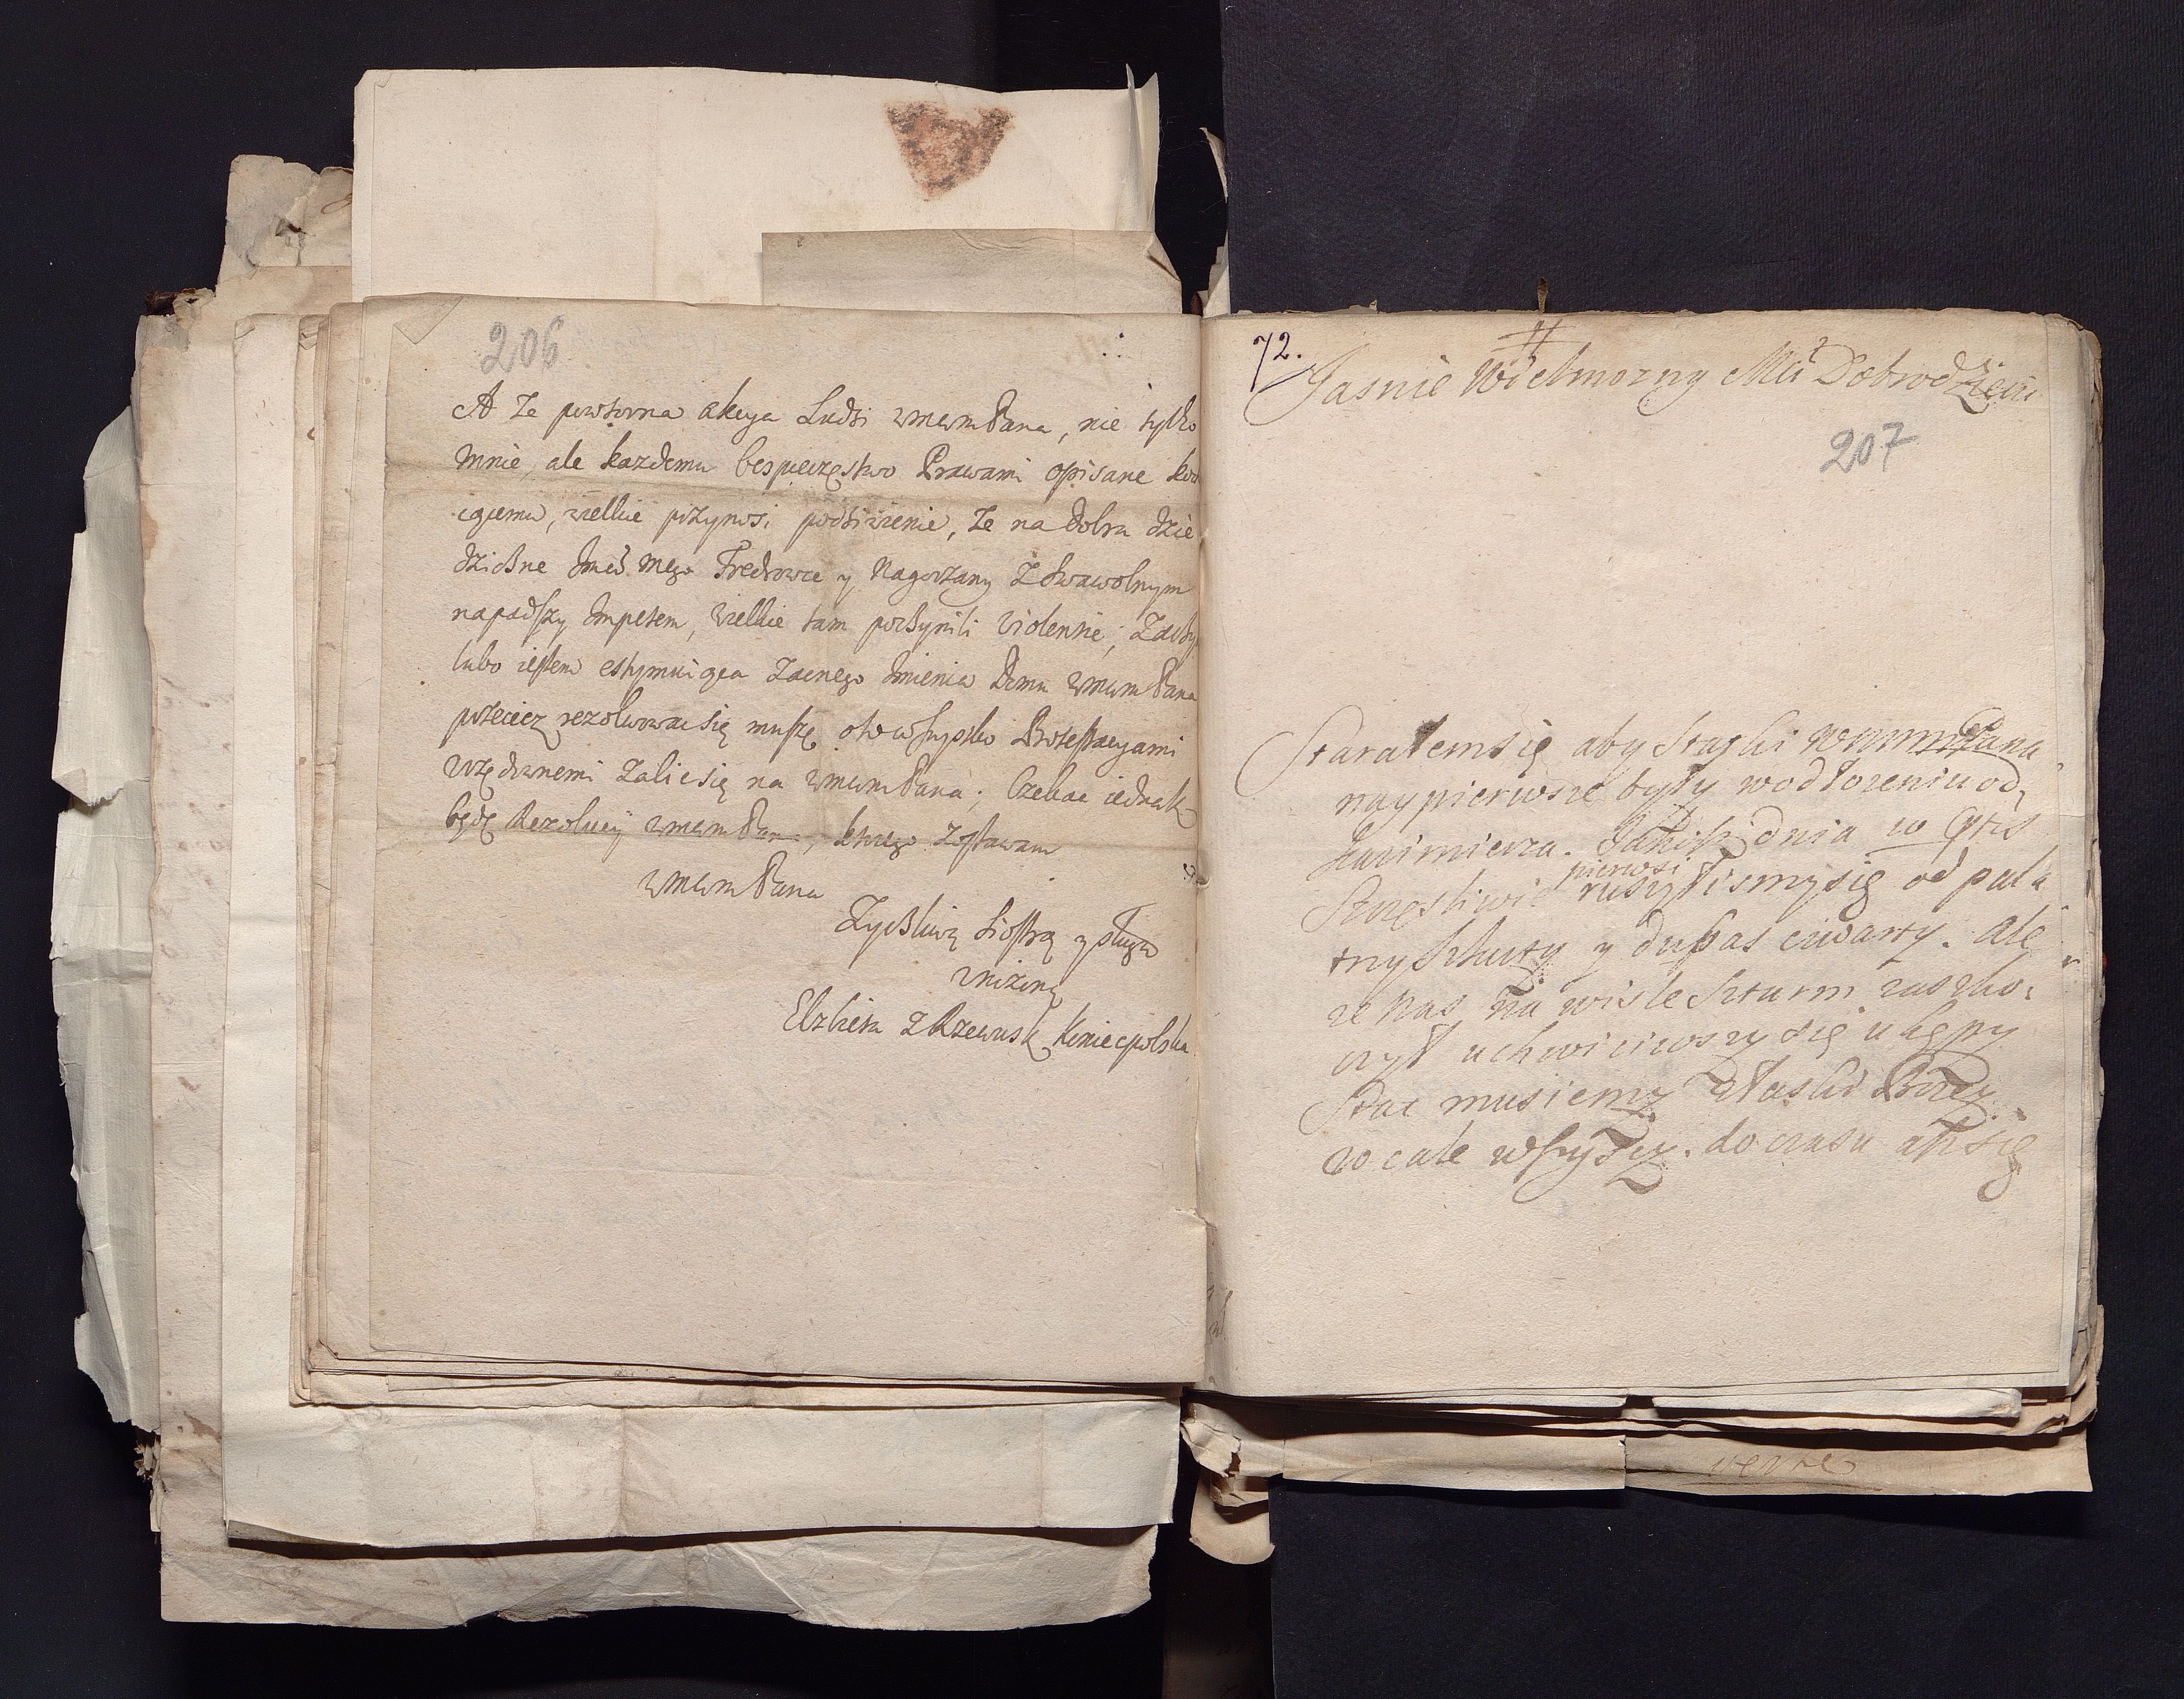 206
A Ze powtorna akcya Ludzi wmwm Pana, nie tylko
mnie, ale kazdemu bespieczęstwo Prawami opisane
wielkie przynosi podziwienie, Ze na dobra dzie
dziczne Jmci mego Fredrowce y Nagorzany Zswawolnym
napadszy Jmpetem, wielkie tam poczynili violencie,
lubo iestem estymuiąca Zacnego Jmienia Domu wmwm Pana
przeciez rezolwowac się muszę oto wszystko Protestacyami
Vrzędownemi Zalic się na wmwm Pana; Czekac iednak
będę Rezolucÿ wmwm Pana, ktorego zostawam
wmwm Pana
Zyczliwą siostrą y sługą
vnizoną
Elzbieta Z Rzewusk Koniecpolska
72.
Jasnie Wielmozny Mci Dobrodzieiu
207
Staratem się aby sługi Wmm Pana
naypierwsze były wodłozeniu od,
Kazimierza. Jakosz dnia
Szczęsliwie pierwsi ruszylismy się od pala
try Szkuty y dubas czwarty. Ale
ze nas na wisle szturm zasko:
czył uchwiciwszy się u kępy
Stac musiemy Z łaski Bozey
wcale wszyscy. do czasu
verte